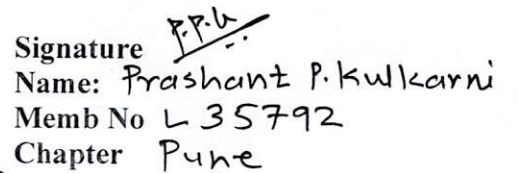 Signature P.P.K
Name: Prashant P. Kulkarni
Memb No L 35792
Chapter Pune